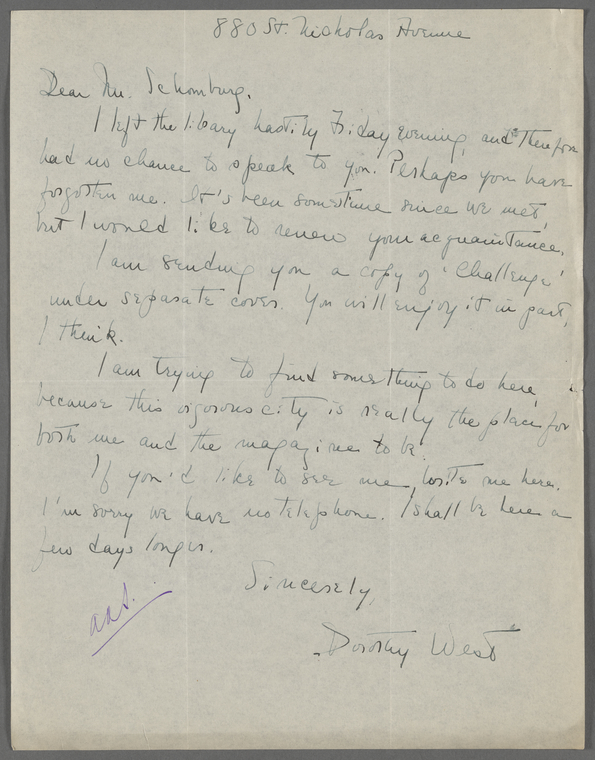 880 St. Nicholas Avenue
Dear Mr. Schomburg,
I left the libary hastily Friday evening, and therefore
had no chance to speak to you. Perhaps you have
forgotten me. It's been sometime since we met,
but I would like to renew your acquaintance.
I am sending you a copy of 'Challenge'
under separate cover. You will enjoy it in part,
I think.
I am trying to find something to do here,
because this vigorous city is really the place for
both me and the magazine to be.
If you'd like to see me, write me here.
I'm sorry we have no telephone. I shall be here a
few days longer.
Sincerely,
Dorothy West
aas.